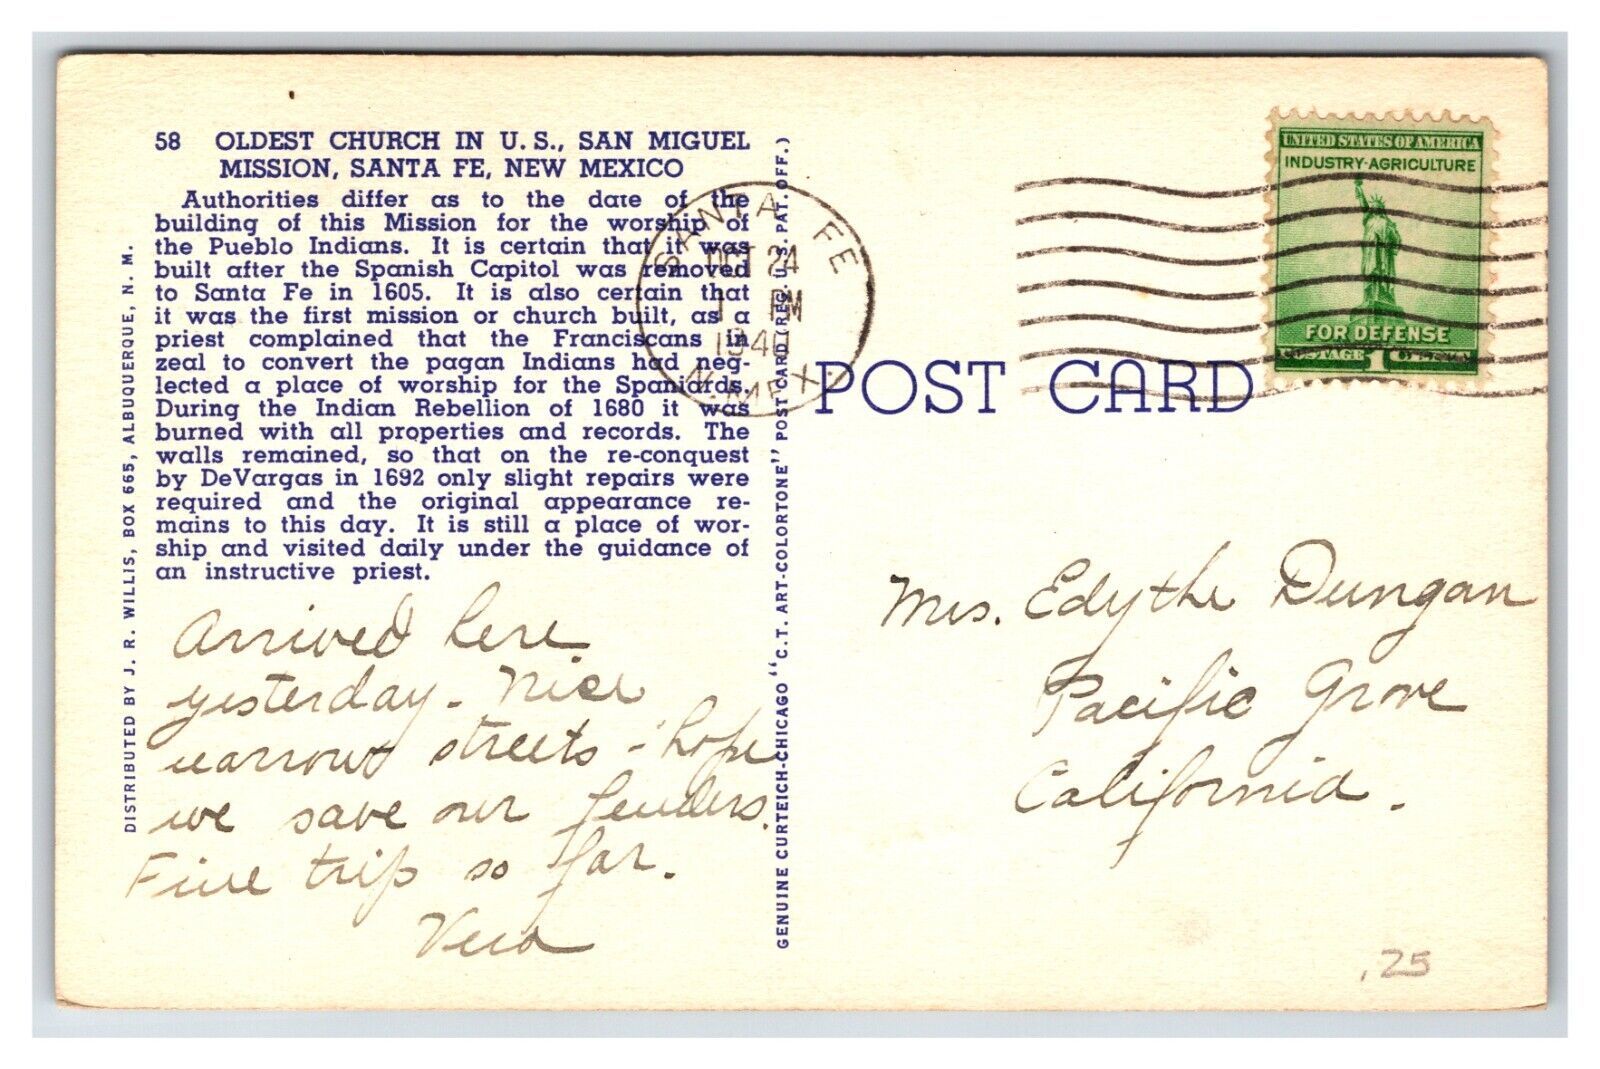 58 OLDEST CHURCH IN U. S., SAN MIGUEL
MISSION, SANTA FE, NEW MEXICO
Authorities differ as to the date of the
building of this Mission for the worship of
the Pueblo Indians. It is certain that it was
built after the Spanish Capitol was removed
to Santa Fe in 1605. It is also certain that
it was the first mission or church built, as a
priest complained that the Franciscans in
zeal to convert the pagan Indians had neg-
lected a place of worship for the Spaniards.
During the Indian Rebellion of 1680 it was
burned with all properties and records. The
walls remained, so that on the re-conquest
by DeVargas in 1692 only slight repairs were
required and the original appearance re-
mains to this day. It is still a place of wor-
ship and visited daily under the guidance of
an instructive priest.
Arrived here
yesterday - Nice
narrow streets - hope
we save our fenders.
Fine trip so far.
Vera
DISTRIBUTED BY J. R. WILLIS, BOX 665, ALBUQUERQUE, N. M.
GENUINE CURTEICH-CHICAGO "C.T. ART-COLORTONE" POST CARD (REG. U.S. PAT. OFF.)
SANTA FE
OCT 24
1 PM
1940
N. MEX.
UNITED STATES OF AMERICA
INDUSTRY-AGRICULTURE
FOR DEFENSE
POSTAGE 1¢
POST CARD
Mrs. Edythe Dungan
Pacific Grove
California.
.25